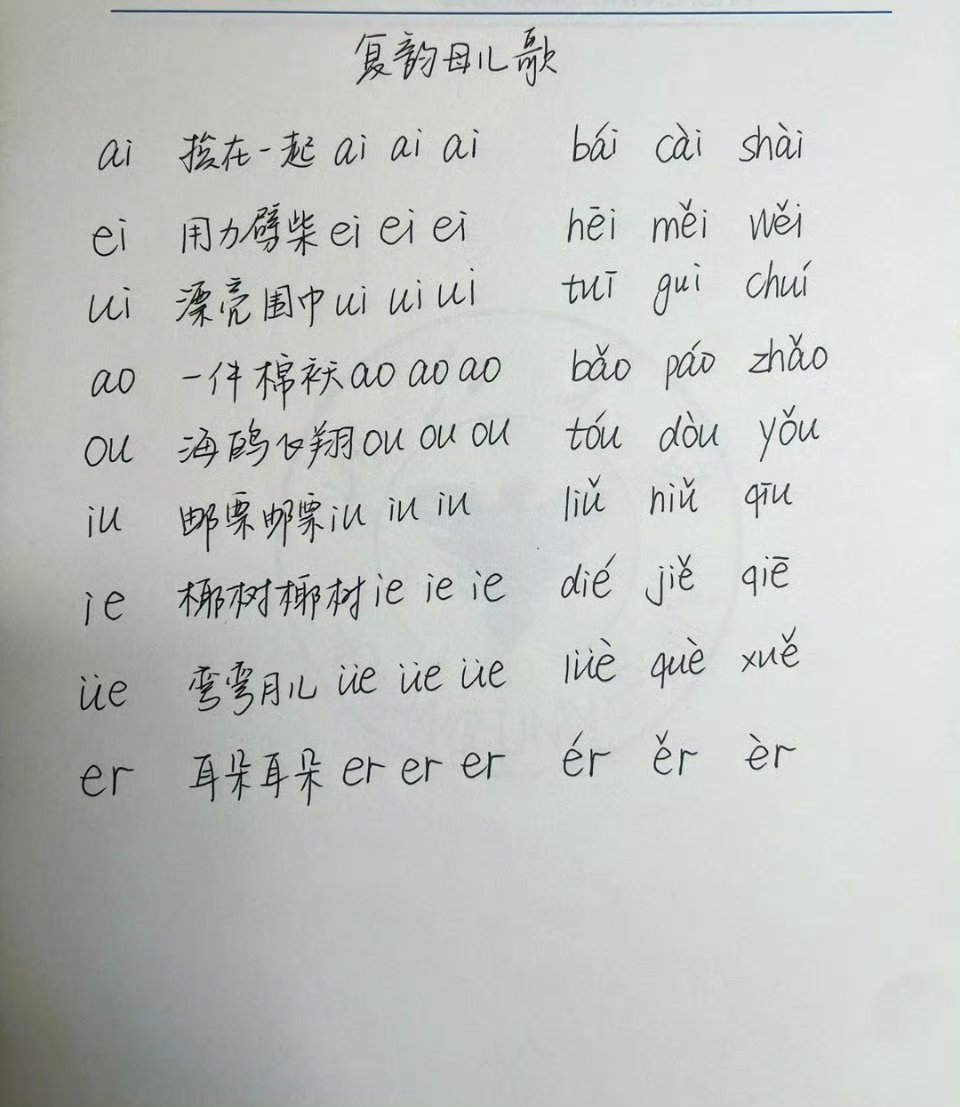 复韵母儿歌
ai 挨在一起 ai ai ai bái cài shài
ei 用力劈柴 ei ei ei hēi měi wěi
ui 漂亮围巾 ui ui ui tuī gui chuí
ao 一件棉袄 ao ao ao bǎo páo zhǎo
ou 海鸥飞翔 ou ou ou tóu dòu yǒu
iu 邮票邮票 iu iu iu liǔ niǔ qīu
ie 椰树椰树 ie ie ie dié jiě qiē
üe 弯弯月儿 üe üe üe lüè què xuě
er 耳朵耳朵 er er er ér ěr èr